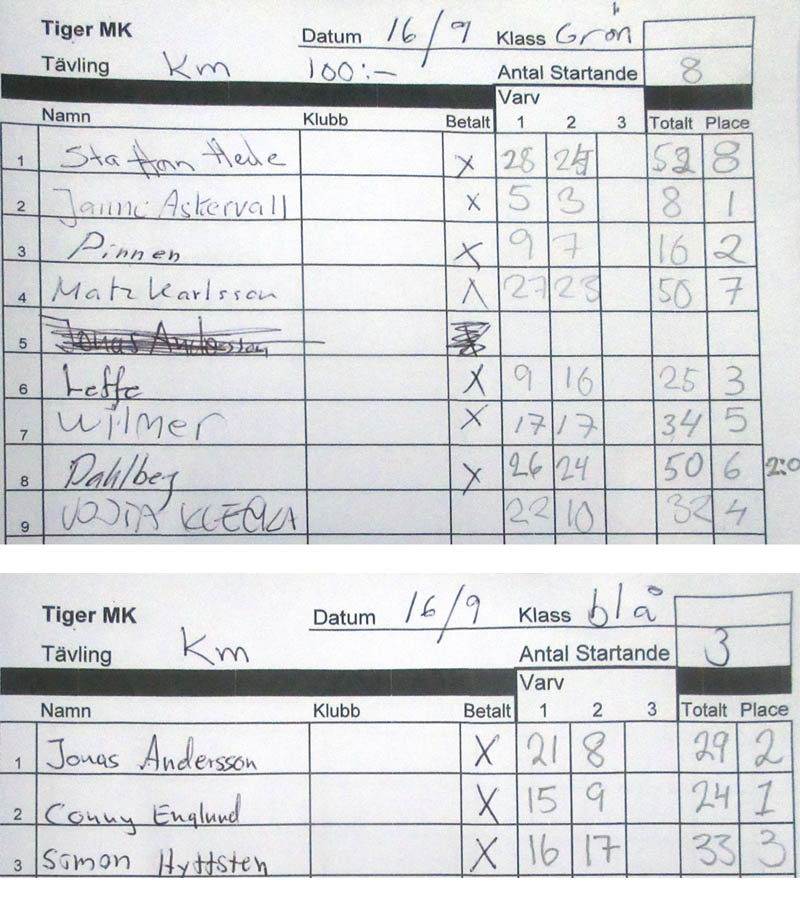 Tiger MK Datum 16/9 Klass Grön
Tävling Km 100:- Antal Startande 8
Varv
Namn Klubb Betalt 1 2 3 Totalt Place
1 Staffan Hede X 28 8
2 Janne Askervall X 5 3 8 1
3 Pinnen X 9 7 16 2
4 Matz Karlsson X 27 23 50 7
5 Jonas Andersson
6 Leffe X 9 16 25 3
7 Wilmer X 17 17 34 5
8 Dahlberg X 26 24 50 6 2:0
9 VOJTA KLECKA 22 10 32 4
Tiger MK Datum 16/9 Klass blå
Tävling Km Antal Startande 3
Varv
Namn Klubb Betalt 1 2 3 Totalt Place
1 Jonas Andersson X 21 8 29 2
2 Conny Englund X 15 9 24 1
3 Simon Hyttsten X 16 17 33 3